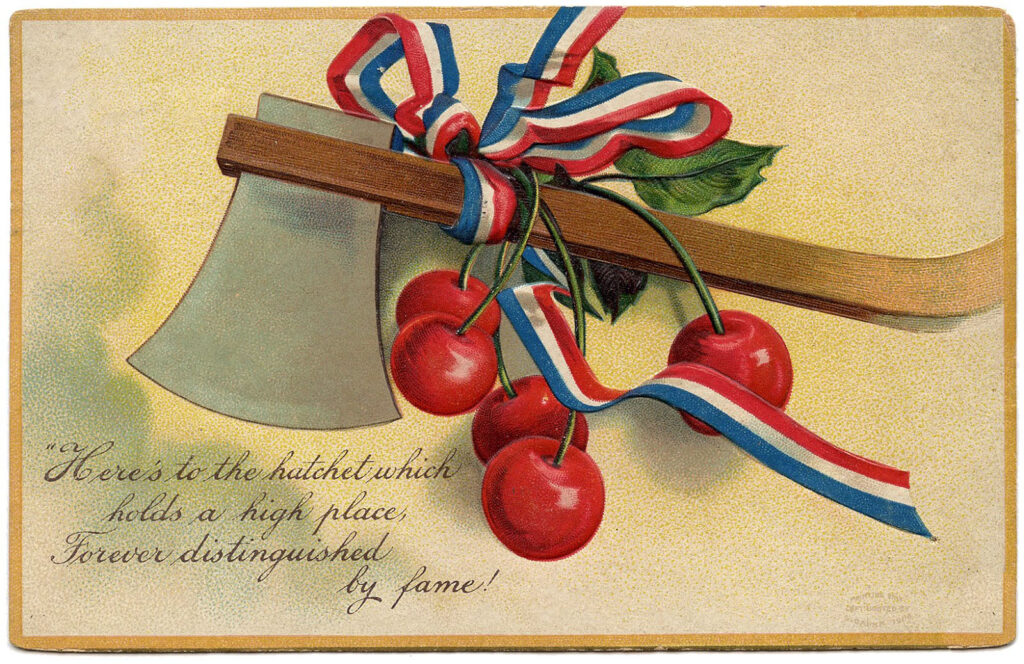 "Here's to the hatchet which
holds a high place,
Forever distinguished
by fame!